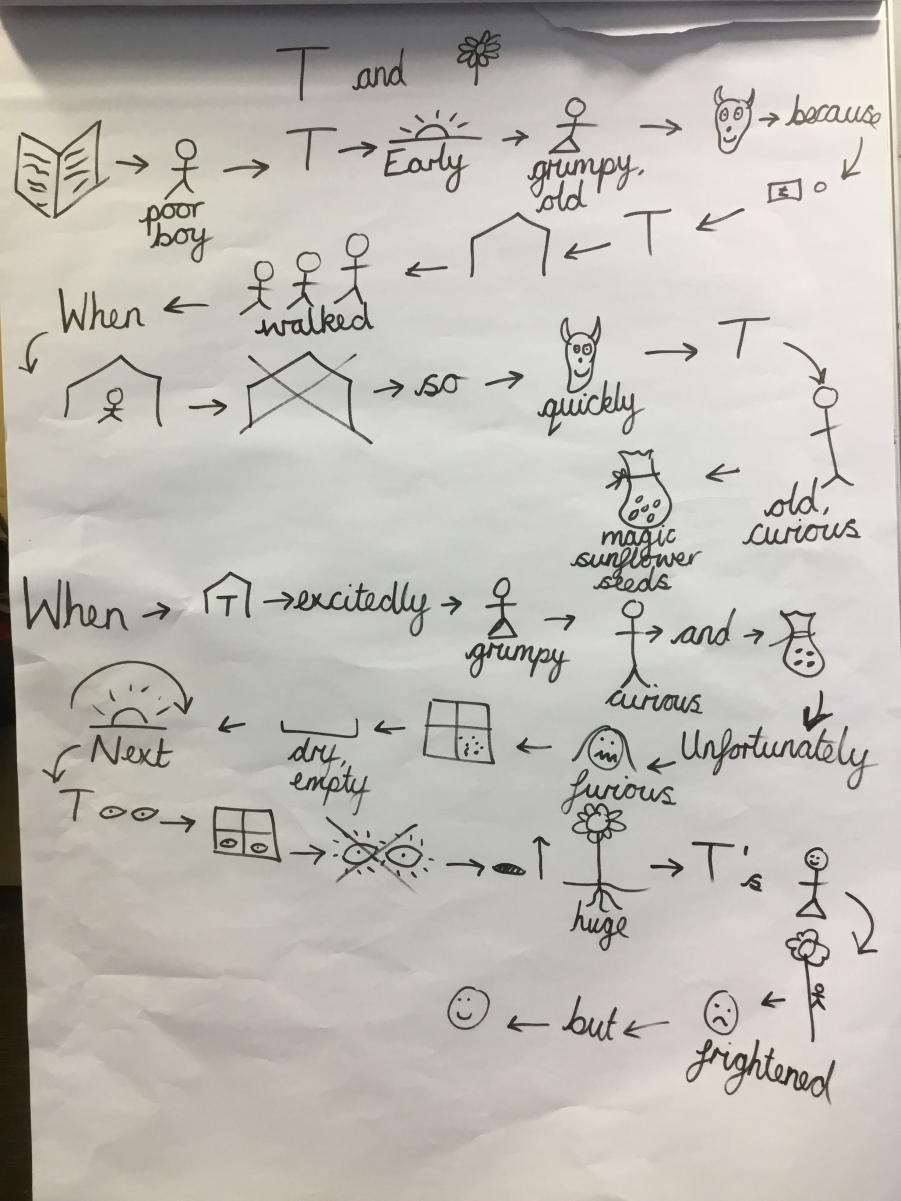 T and
T
because
Early
grumpy,
old
poor
boy
T
When
walked
so
T
quickly
old,
curious
magic
sunflower
seeds
When
T
excitedly
grumpy
and
curious
Unfortunately
Next
dry,
empty
furious
T
T's
huge
but
frightened